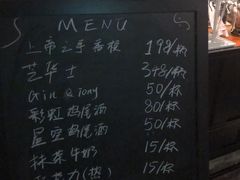 MENU
上帝之手香槟 198/杯
芝华士 348/杯
Gin & Tony 50/杯
彩虹鸡尾酒 80/杯
星空鸡尾酒 50/杯
抹茶牛奶 15/杯
力(热) 15/杯